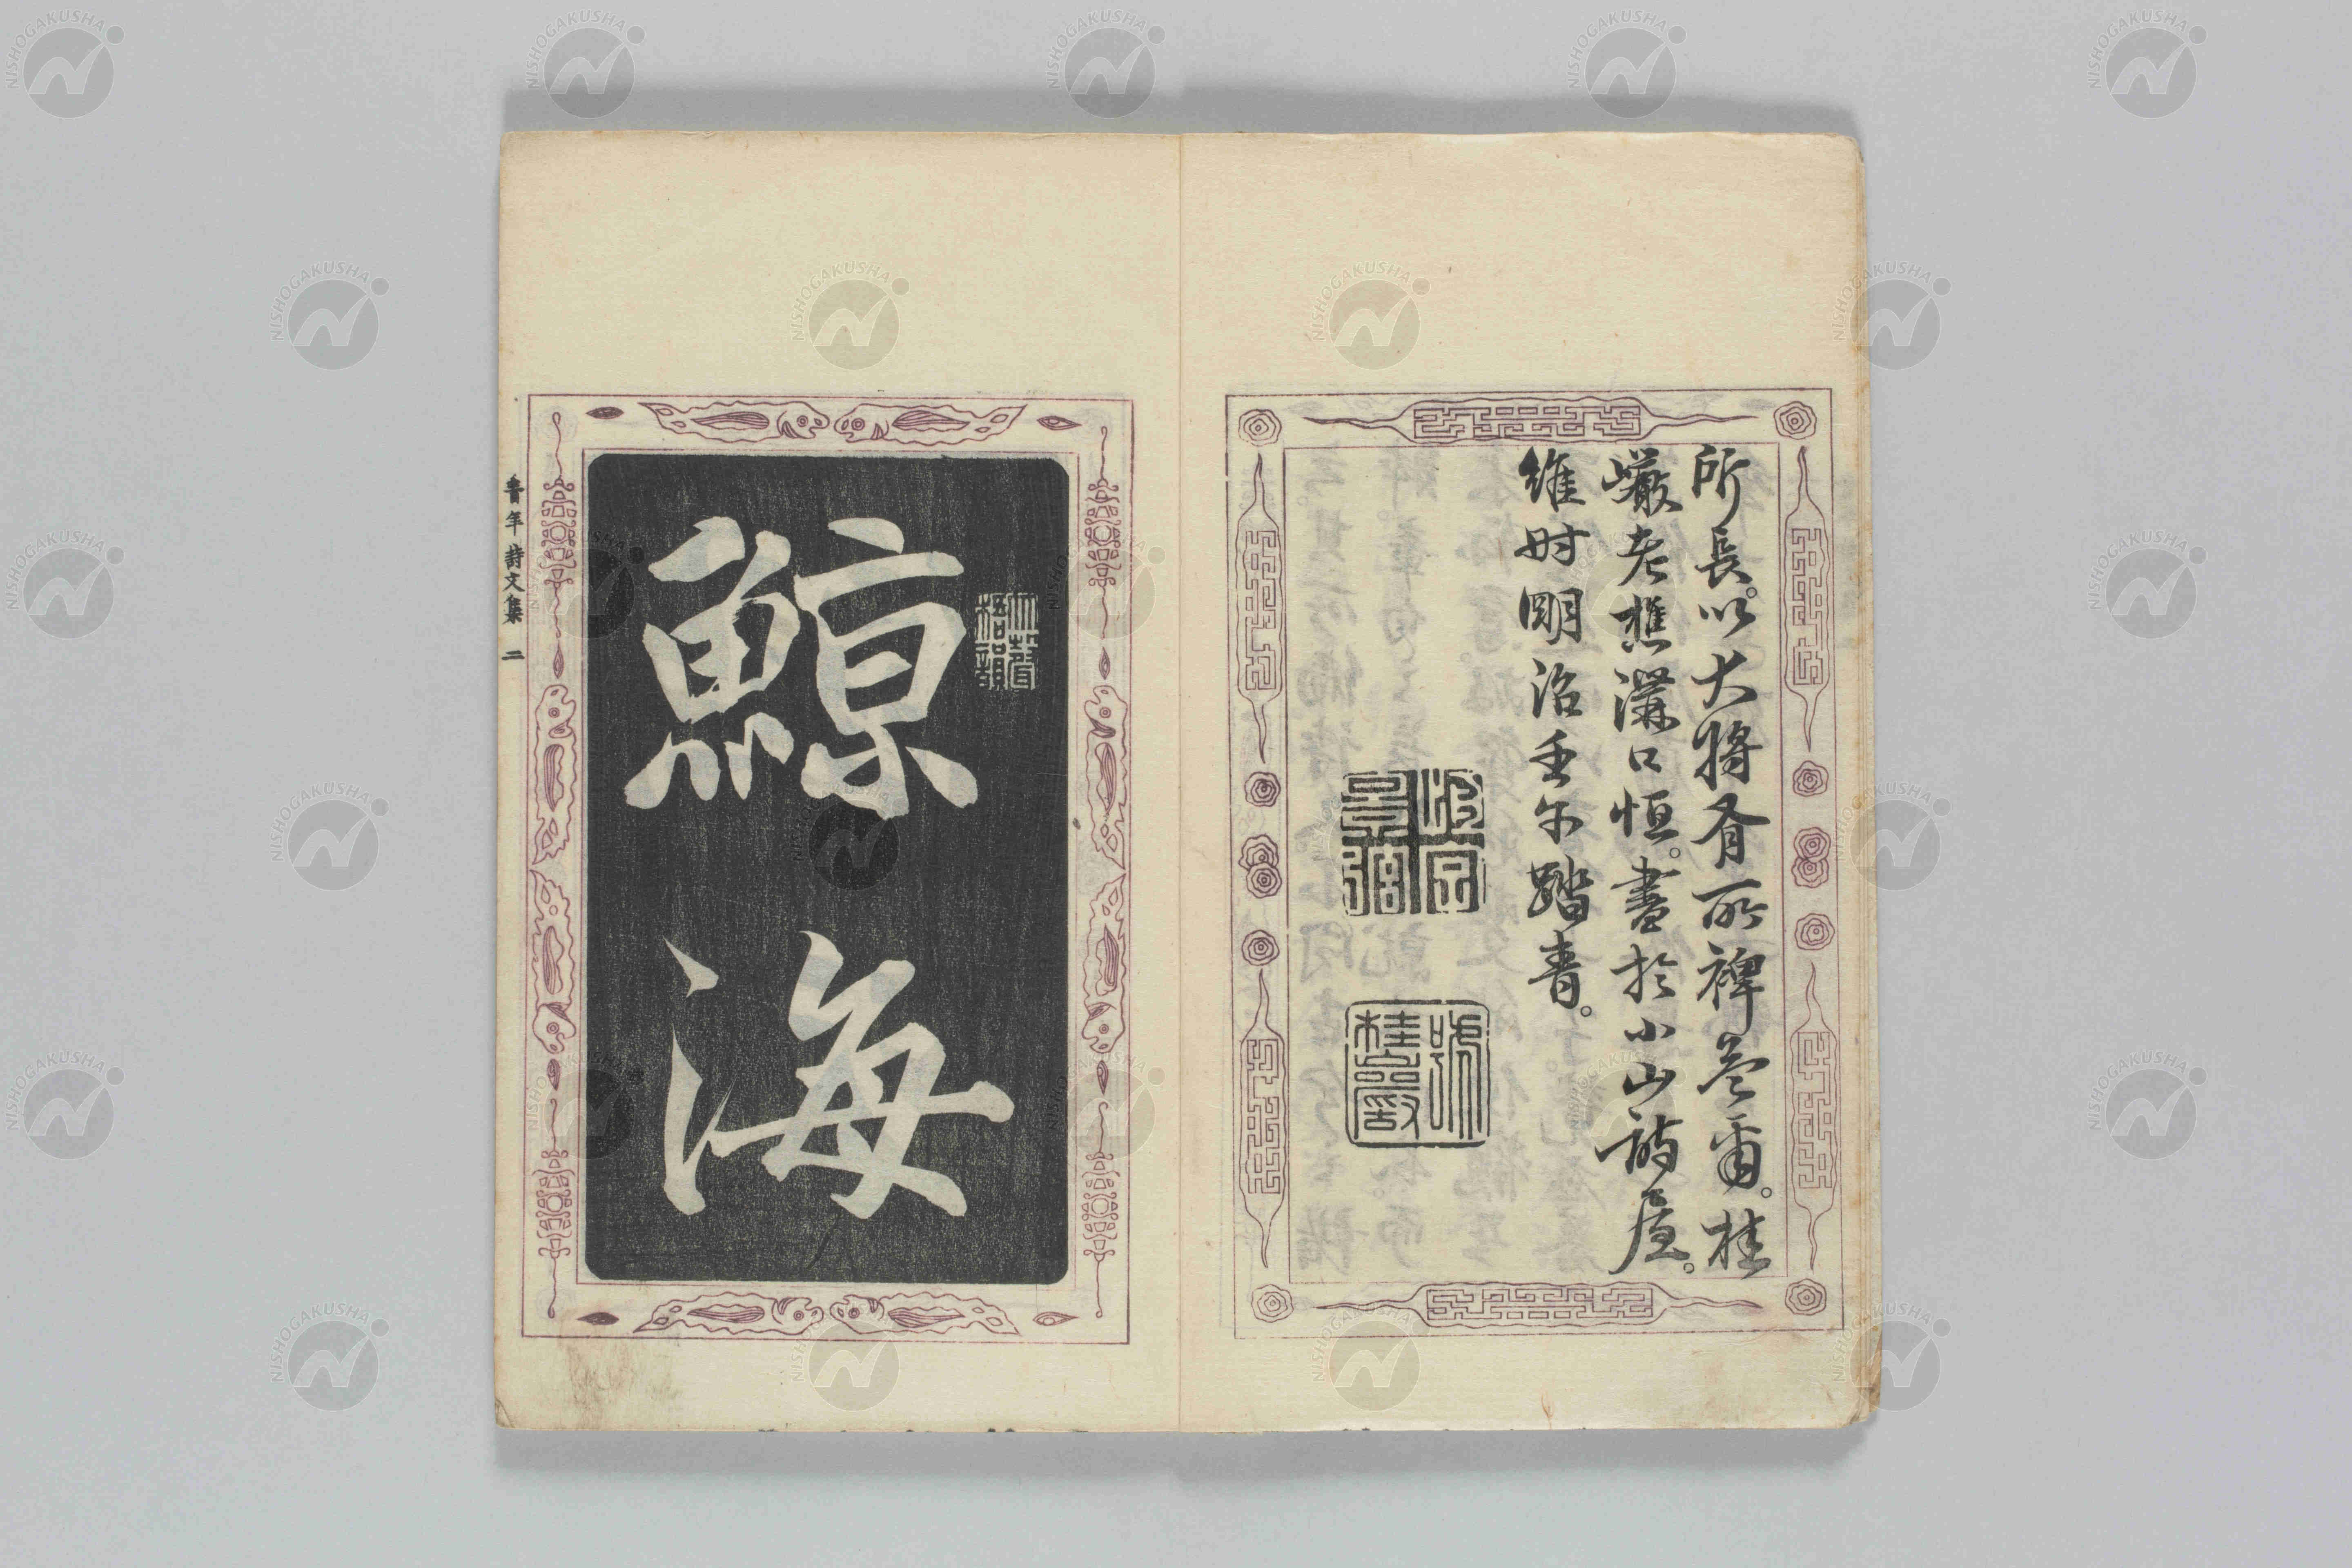 所長。以大將有所裨益焉。桂
巖老樵溝口恒。書於小山詩屋。
維時明治壬午踏青。
鯨海
青年詩文集 二
NISHOGAKUSHA